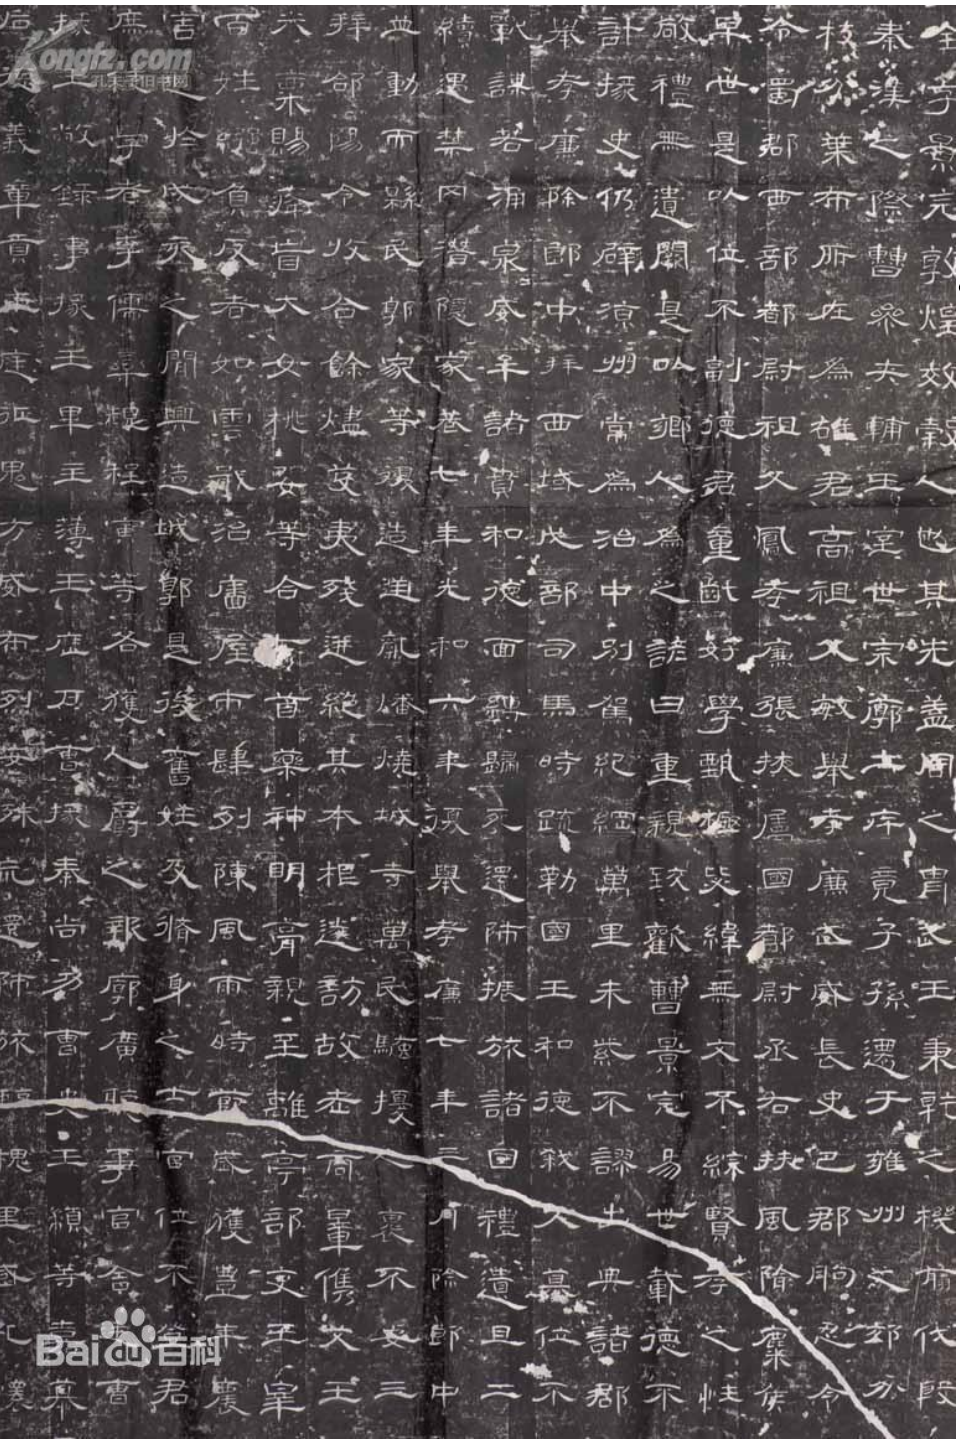 全字景完敦煌效穀人也其先蓋周之胄武王秉乾之機翦伐殷
秦漢之際曹參夾輔王室世宗廓土斥竟子孫遷于雍州之郊分
枝分葉布所在為雄君高祖父敏舉孝廉武威長史巴郡朐忍令
令蜀郡西部都尉祖父鳳孝廉張掖屬國都尉丞右扶風隃麋侯
早世是以位不副德君童齔好學甄極毖緯無文不綜賢孝之性
敬禮無遺闕是以鄉人為之諺曰重親致歡曹景完易世載德不
計掾史仍辟涼州常為治中別駕紀綱萬里朱紫不謬出典諸郡
舉孝廉除郎中拜西域戊部司馬時疏勒國王和德弒父篡位不
戰謀若涌泉威牟諸賁和德面縛歸死還師振旅諸國禮遺且二
續遇禁罔潛隱家巷七年光和六年復舉孝廉七年三月除郎中
並動而縣民郭家等復造逆亂燔燒城寺萬民騷擾人裹不安三
拜郃陽令收合餘燼芟夷殘迸絕其本根遂訪故老商量儁艾王
大棗賜癃盲大女桃婓等合七首藥神明膏親至離亭部吏王宰
百姓繈負反者如雲戢治廧屋市肆列陳風雨時節歲獲豐年農
害退於戌亥之間興造城郭是後舊姓及脩身之士官位不登君
庶學者李儒欒規程寅等各獲人爵之報廓廣聽事官舍廷曹
掾王敞錄事掾王畢主簿王歷戶曹掾秦尚功曹史王顓等嘉慕
后德義章貢王庭征鬼方威布烈安殊巟還師旅臨槐里感孔懷
Kongfz.com
孔夫子旧书网
Baidu百科